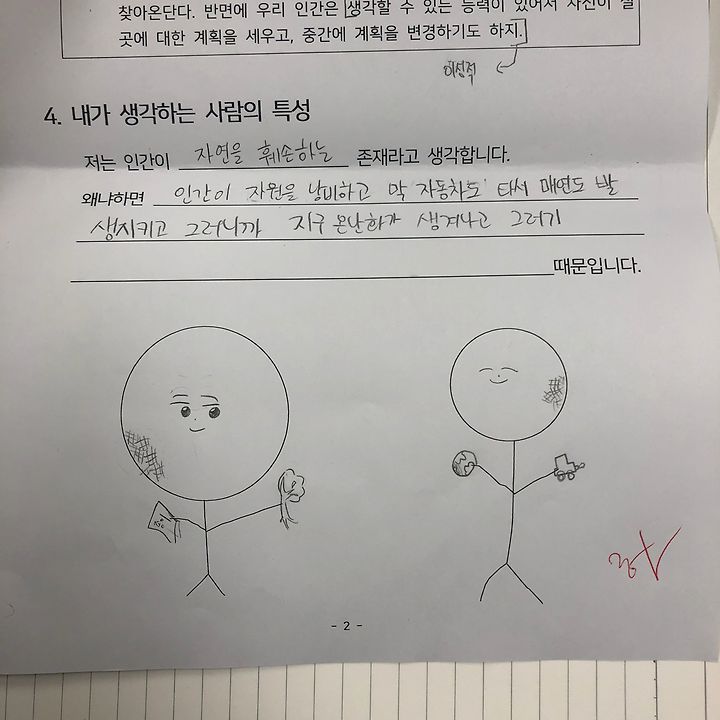 찾아온단다. 반면에 우리 인간은 생각할 수 있는 능력이 있어서 자신이 갈
곳에 대한 계획을 세우고, 중간에 계획을 변경하기도 하지.
이성적
4. 내가 생각하는 사람의 특성
저는 인간이 자연을 훼손하는 존재라고 생각합니다.
왜냐하면 인간이 자원을 낭비하고 막 '자동차도' 타서 매연도 발
생시키고 그러니까 지구 온난화가 생겨나고 그러기
때문입니다.
- 2 -